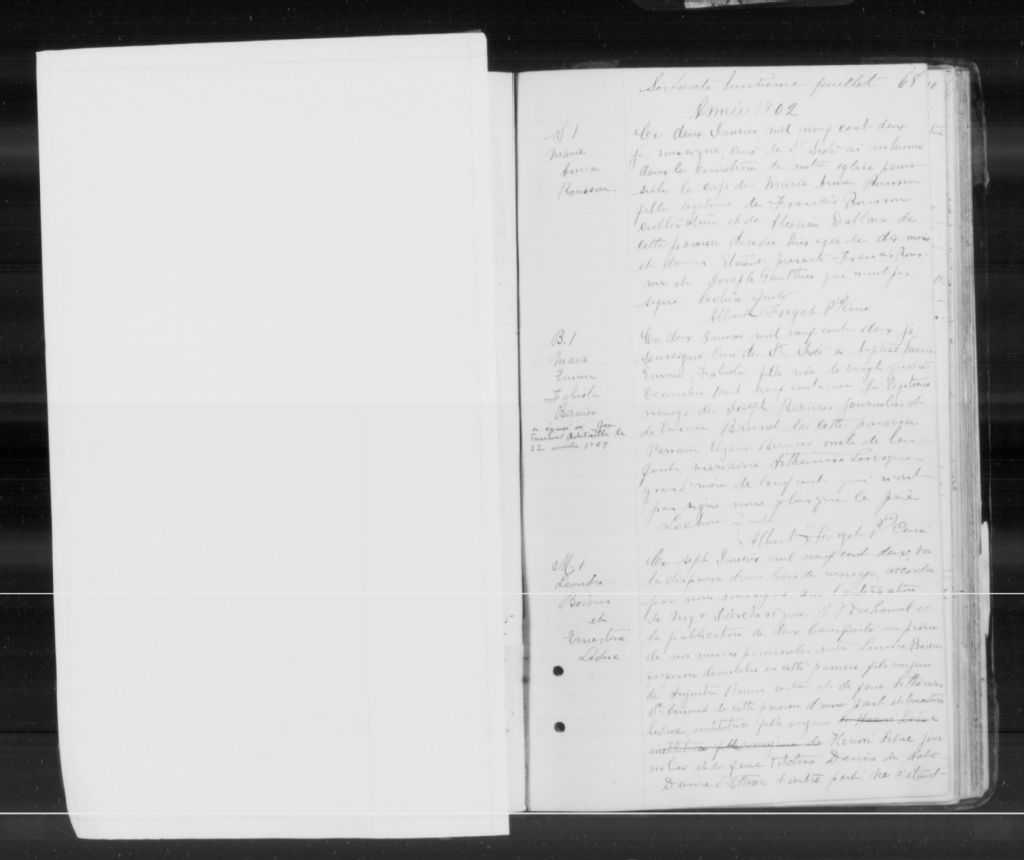 Soixante huitième feuillet 68
Année 1902
S 1
Marie
Anna
Rousson
Ce deux Janvier mil neuf cent deux
je, soussigné, curé de St Sixte ai inhumé
dans le cimetière de notre église parois-
siale le corps de Marie Anna Rousson
fille légitime de Francis Rousson
cultivateur et de Dallaire de
cette paroisse décédée hier agée de dix mois
et demi. Etaient présents Francis Rous-
son et Joseph Gauthier qui n'ont pas
signé. Lecture faite
Albert Forget Ptre Curé
B. 1
Marie
Emma
Fabiola
Bernier
a épousé ici
le
22 1929
Ce deux Janvier mil neuf cent deux je,
soussigné, curé de St Sixte ai baptisé Marie
Emma Fabiola, fille née le vingt quatre
Décembre mil neuf cent un du légitime
mariage de Joseph Bernier journalier et
de Emma Brunet de cette paroisse
Parrain Bernier oncle de l'en-
fant, marraine
grand'mère de l'enfant qui n'ont
pas signé non plus que le père
Lecture faite
Albert Forget Ptre Curé
M. 1
Léandre
Boivin
et
Ernestine
Leduc
Ce sept Janvier mil neuf cent deux vu
la dispense d'un ban de mariage, accordée
par nous soussigné avec l'autorisation
de Mgr l'Archevêque J. T. Duhamel et
la publication de deux bans faite au prône
de nos messes paroissiales entre Léandre Boivin
garçon domicilié en cette paroisse, fils majeur
de Augustin Boivin rentier et de feue
St Amand de cette paroisse d'une part et Ernestine
Leduc, institutrice fille majeure de Honoré Leduc
institutrice fille majeure de Honoré Leduc jour-
nalier et de feue Davis de Notre
Dame d' d'autre part; ne s'étant